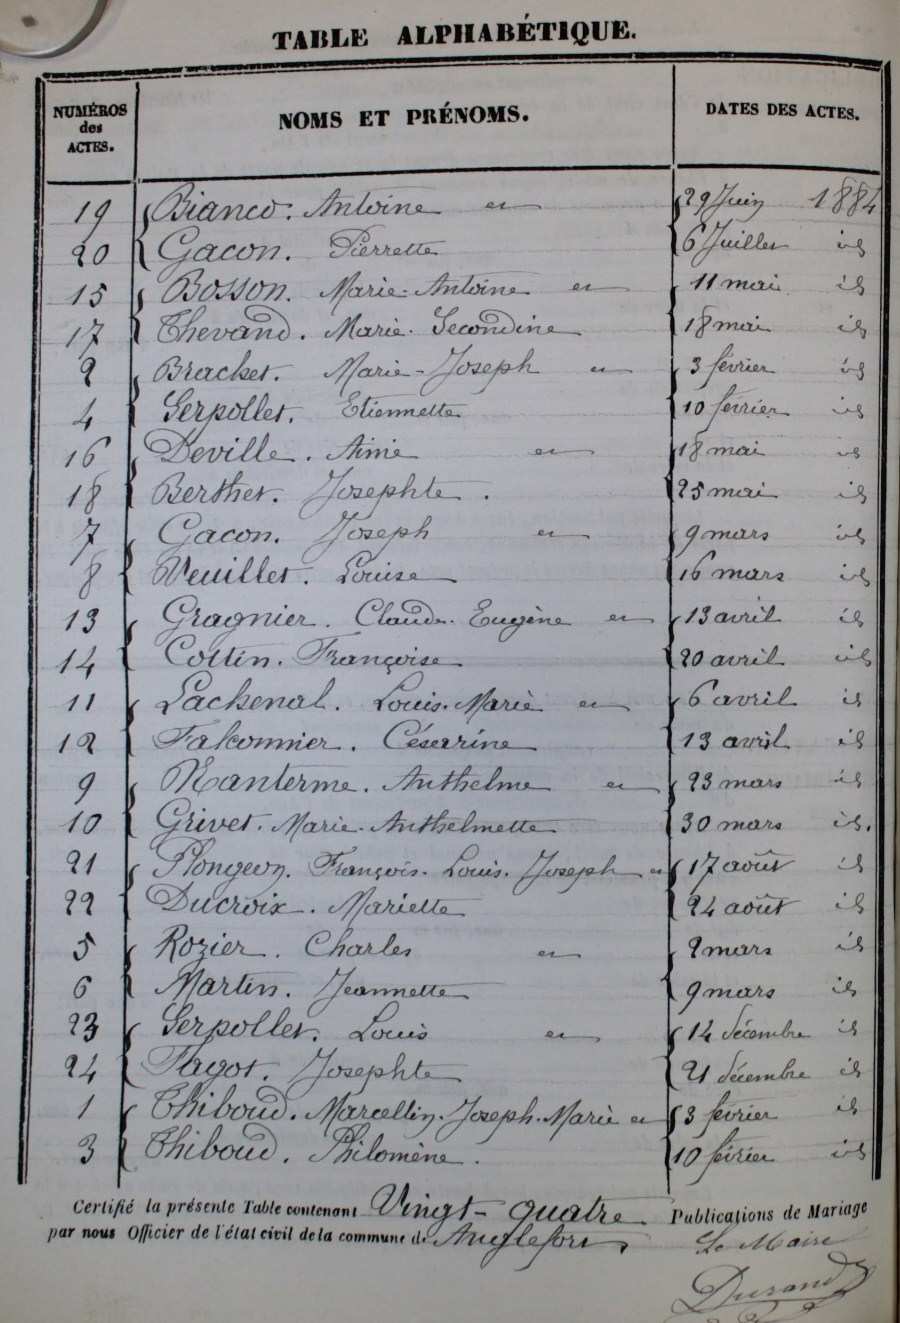 TABLE ALPHABÉTIQUE.
NUMÉROS des ACTES. NOMS ET PRÉNOMS. DATES DES ACTES.
19 Bianco. Antoine et 29 Juin 1884
20 Gacon. Pierrette 6 Juillet id
15 Bosson. Marie-Antoine et 11 mai id
17 Thevand. Marie-Secondine 18 mai id
2 Brachet. Marie-Joseph et 3 février id
4 Serpollet. Etiennette 10 février id
16 Deville. Aimé et 18 mai id
18 Berthet. Josephte. 25 mai id
7 Gacon. Joseph et 9 mars id
8 Veuillet. Louise 16 mars id
13 Gragnier. Claude-Eugène et 13 avril id
14 Cottin. Françoise 20 avril id
11 Lachenal. Louis-Marie et 6 avril id
12 Falconnier. Césarine 13 avril id
9 Nanterme. Anthelme et 23 mars id
10 Grivet. Marie-Anthelmette 30 mars id.
21 Plongeon. François-Louis-Joseph et 17 août id
22 Ducroix. Mariette 24 août id
5 Rozier. Charles et 2 mars id
6 Martin. Jeannette 9 mars id
23 Serpollet. Louis et 14 décembre id
24 Fagot. Josephte 21 décembre id
1 Thiboud. Marcellin-Joseph-Marie et 3 février id
3 Thiboud. Philomène. 10 février id
Certifié la présente Table contenant Vingt-quatre Publications de Mariage
par nous Officier de l'état civil de la commune d'Anglefort
Le Maire
Durand